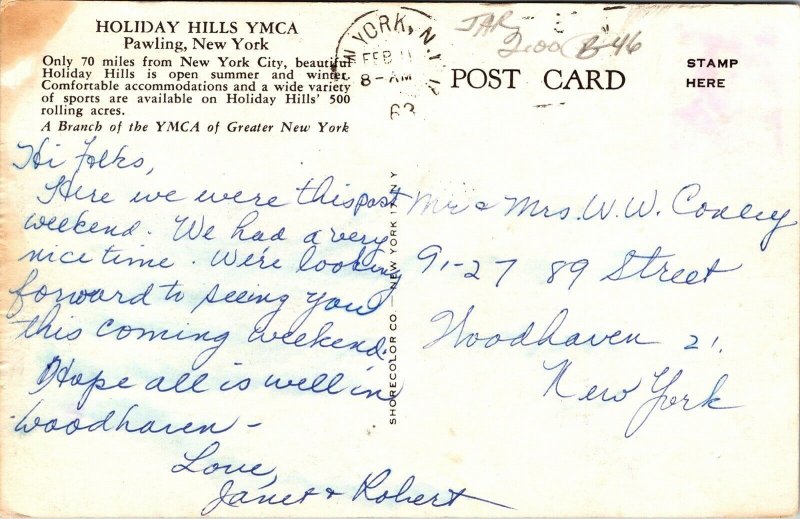 HOLIDAY HILLS YMCA
Pawling, New York
Only 70 miles from New York City, beautiful
Holiday Hills is open summer and winter.
Comfortable accommodations and a wide variety
of sports are available on Holiday Hills' 500
rolling acres.
A Branch of the YMCA of Greater New York
YORK, N.Y.
FEB 11
8-AM
63
2.00 B-46
POST CARD
STAMP
HERE
Hi Folks,
Here we were this past
weekend. We had a very
nice time. We're looking
forward to seeing you
this coming weekend.
Hope all is well in
Woodhaven -
Love,
Janet & Robert
SHORECOLOR CO. — NEW YORK 17, N Y
Mr & Mrs. W. W. Conley
91-27 89 Street
Woodhaven 21,
New York